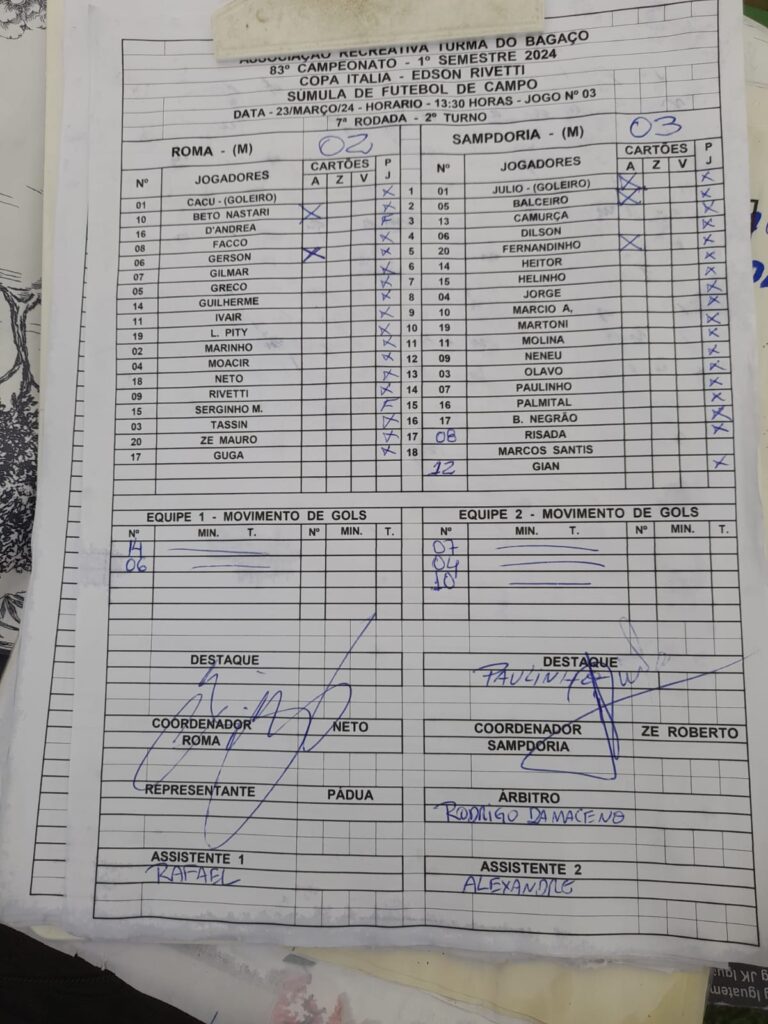 ASSOCIAÇÃO RECREATIVA TURMA DO BAGAÇO
83º CAMPEONATO - 1º SEMESTRE 2024
COPA ITALIA - EDSON RIVETTI
SÚMULA DE FUTEBOL DE CAMPO
DATA - 23/MARÇO/24 - HORARIO - 13:30 HORAS - JOGO Nº 03
7ª RODADA - 2º TURNO
ROMA - (M) 02 SAMPDORIA - (M) 03
Nº JOGADORES CARTÕES P J Nº JOGADORES CARTÕES P J
A Z V A Z V
01 CACU - (GOLEIRO) X 1 01 JULIO - (GOLEIRO) X X
10 BETO NASTARI X X 2 05 BALCEIRO X X
16 D'ANDREA F 3 13 CAMURÇA X
08 FACCO X 4 06 DILSON X
06 GERSON X X 5 20 FERNANDINHO X X
07 GILMAR X 6 14 HEITOR X
05 GRECO X 7 15 HELINHO X
14 GUILHERME X 8 04 JORGE X
11 IVAIR X 9 10 MARCIO A, X
19 L. PITY X 10 19 MARTONI X
02 MARINHO X 11 11 MOLINA X
04 MOACIR X 12 09 NENEU X
18 NETO X 13 03 OLAVO X
09 RIVETTI X 14 07 PAULINHO X
15 SERGINHO M. F 15 16 PALMITAL X
03 TASSIN X 16 17 B. NEGRÃO X
20 ZE MAURO X 17 08 RISADA X
17 GUGA X 18 MARCOS SANTIS
12 GIAN X
EQUIPE 1 - MOVIMENTO DE GOLS EQUIPE 2 - MOVIMENTO DE GOLS
Nº MIN. T. Nº MIN. T. Nº MIN. T. Nº MIN. T.
14 07
06 04
10
DESTAQUE DESTAQUE
PAULINHO
COORDENADOR NETO COORDENADOR ZE ROBERTO
ROMA SAMPDORIA
REPRESENTANTE PÁDUA ÁRBITRO
RODRIGO DAMACENO
ASSISTENTE 1 ASSISTENTE 2
RAFAEL ALEXANDRE